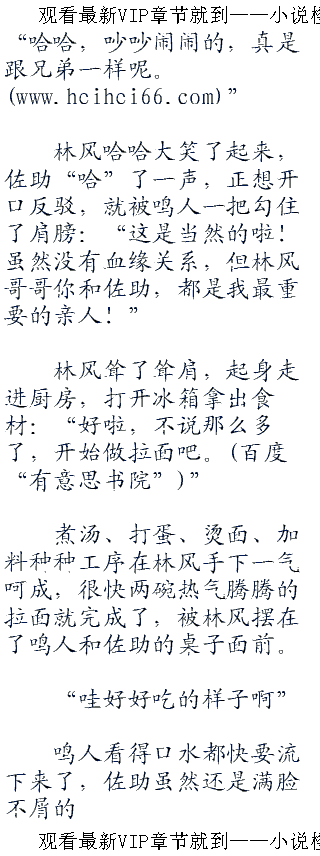 观看最新VIP章节就到——小说检
“哈哈，吵吵闹闹的，真是
跟兄弟一样呢。
(www.hcihci66.com)”
林风哈哈大笑了起来，
佐助“哈”了一声，正想开
口反驳，就被鸣人一把勾住
了肩膀：“这是当然的啦！
虽然没有血缘关系，但林风
哥哥你和佐助，都是我最重
要的亲人！”
林风耸了耸肩，起身走
进厨房，打开冰箱拿出食
材：“好啦，不说那么多
了，开始做拉面吧。(百度
“有意思书院”)”
煮汤、打蛋、烫面、加
料种种工序在林风手下一气
呵成，很快两碗热气腾腾的
拉面就完成了，被林风摆在
了鸣人和佐助的桌子面前。
“哇好好吃的样子啊”
鸣人看得口水都快要流
下来了，佐助虽然还是满脸
不屑的
观看最新VIP章节就到——小说检